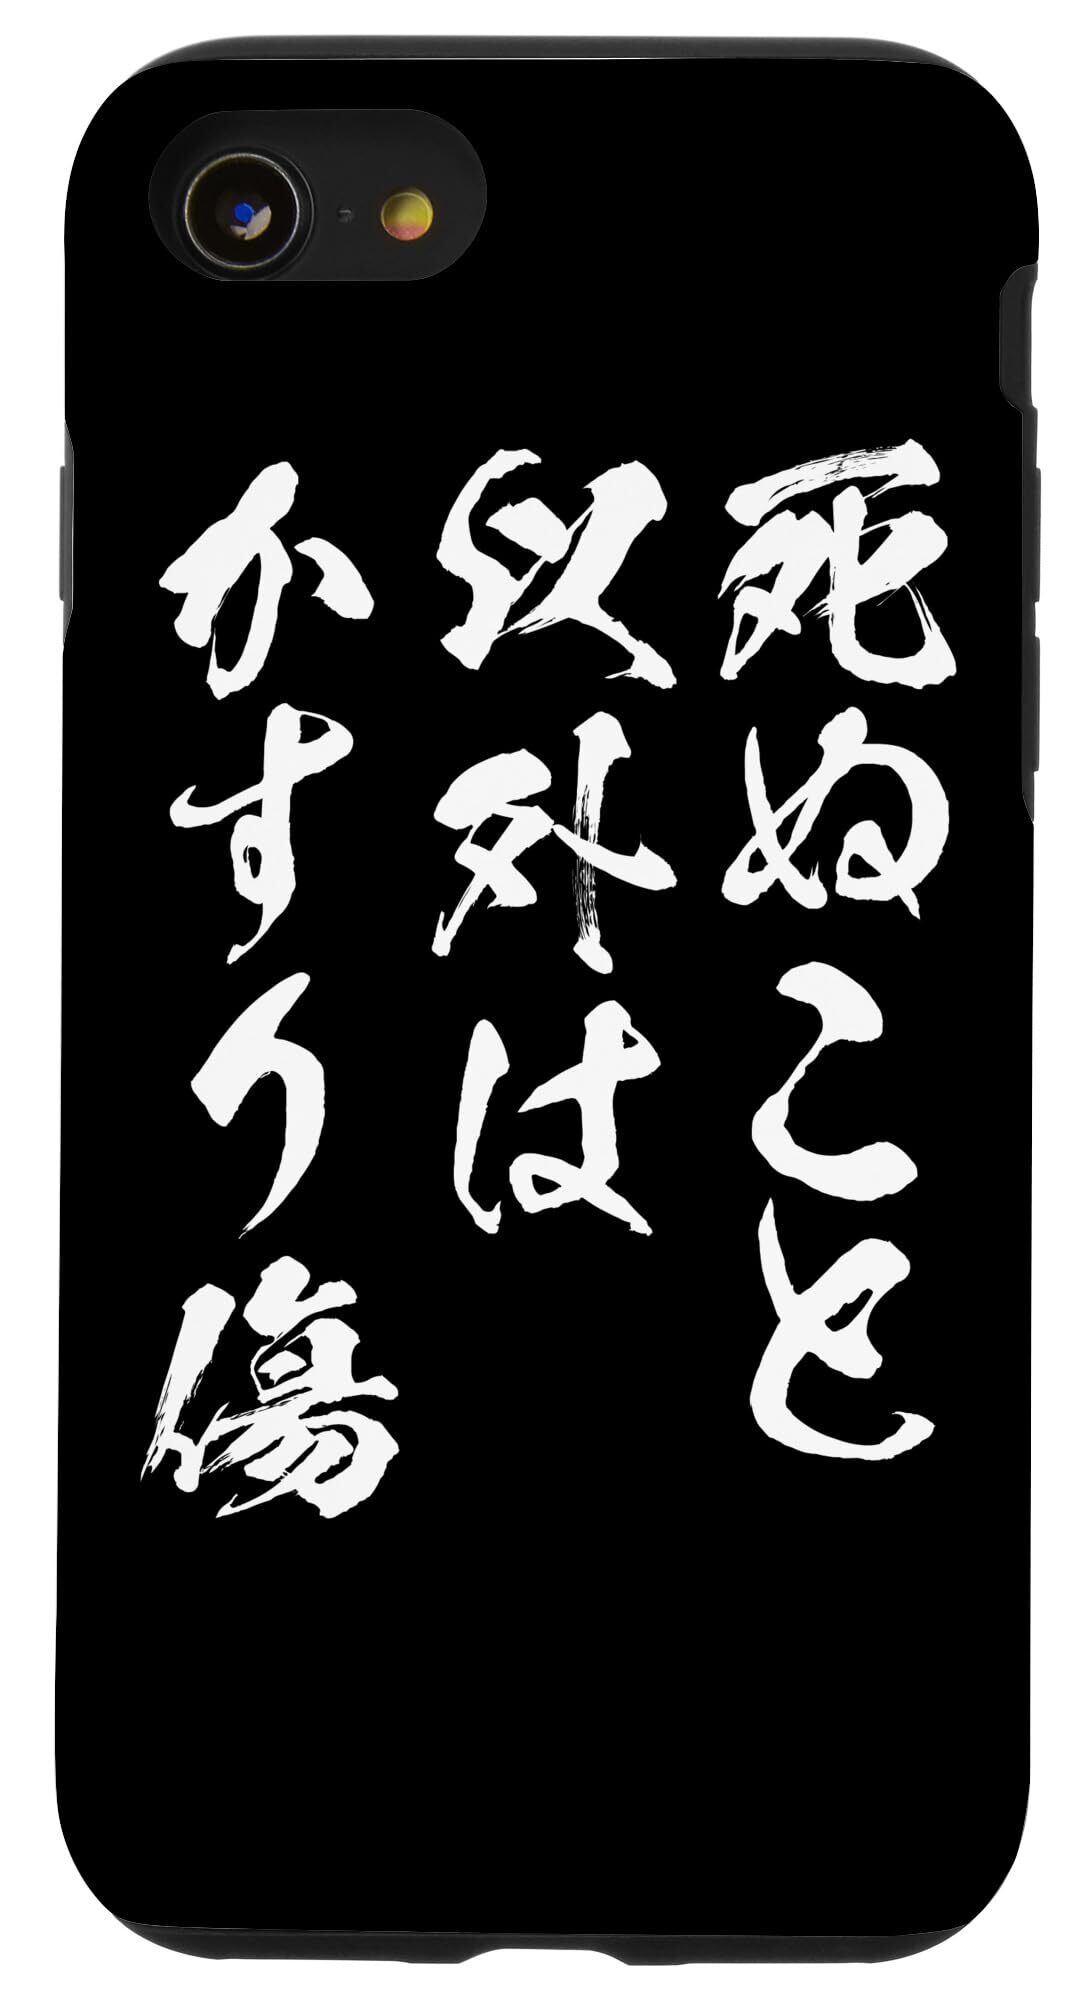 死ぬこと
以外は
かすり傷